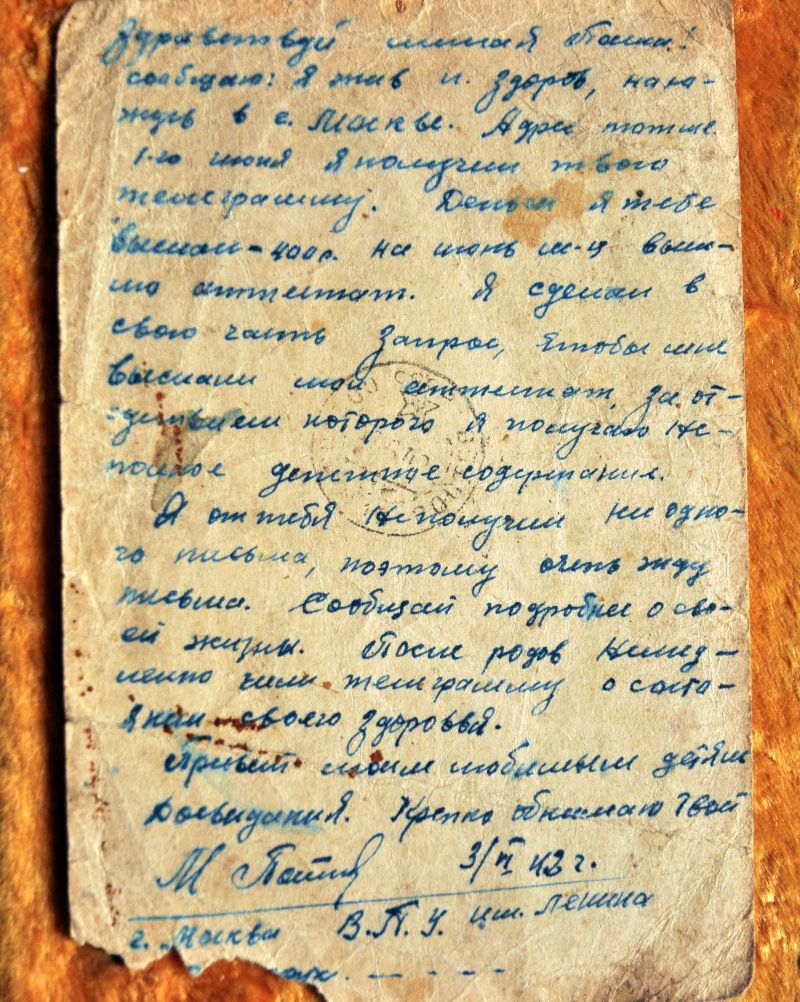 Здравствуй милая Паша!
сообщаю: Я жив и здоров, нахо-
жусь в г. Москве. Адрес тотже
1-го июня я получил твою
телеграмму. Деньги я тебе
выслал - 400р. на июнь м-ц вышлю
аттестат. Я сделал в
свою часть запрос, чтобы мне
выслали мой аттестат, за от-
сутствием которого я получаю не-
полное денежное содержания.
Я от тебя не получил ни одно-
го письма, поэтому очень жду
письма. Сообщай подробнее о сво-
ей жизни. После родов немед-
ленно шли телеграмму о состо-
янии своего здоровья.
Привет моим любимым детям
Досвидания. Крепко обнимаю Твой
М
3/VI 42 г.
г. Москва В.П.У. им. Ленина